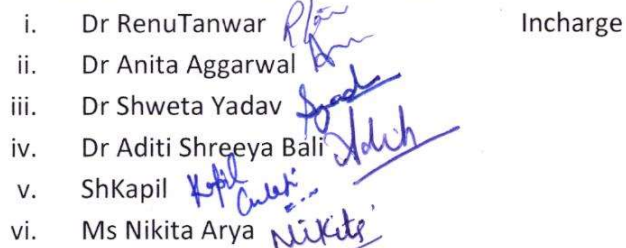 i. Dr RenuTanwar Incharge
ii. Dr Anita Aggarwal
iii. Dr Shweta Yadav
iv. Dr Aditi Shreeya Bali Aditi
v. ShKapil Kapil Gulati
vi. Ms Nikita Arya Nikita